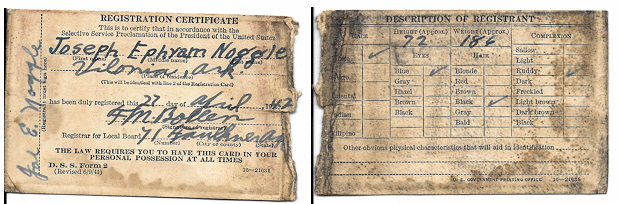 REGISTRATION CERTIFICATE
This is to certify that in accordance with the
Selective Service Proclamation of the President of the United States
Joseph Ephram Noggle
(First name) (Middle name)
Vilonia, Ark.
(Place of residence)
(This will be identical with line 2 of the Registration Card)
has been duly registered this day of April
Registrar for Local Board
(Number) (City or county) (State)
THE LAW REQUIRES YOU TO HAVE THIS CARD IN YOUR
PERSONAL POSSESSION AT ALL TIMES
D. S. S. Form 2
(Revised 6/9/41) 16—21631
DESCRIPTION OF REGISTRANT
RACE HEIGHT (Approx.) WEIGHT (Approx.) COMPLEXION
72 186
EYES HAIR
Sallow
Light
Blue ✓ Blonde Ruddy ✓
Gray Red Dark
Hazel Brown Freckled
Brown Black ✓ Light brown
Black Gray Dark brown
Bald Black
Other obvious physical characteristics that will aid in identification
U. S. GOVERNMENT PRINTING OFFICE 16—21631